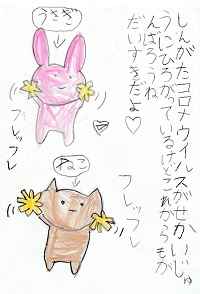 しんがたコロナウイルスがせかいじゅ
うにひろがっているけどこれからもが
んばろうね
だいすきだよ♡
うさぎ
フレッフレ
ねこ
フレッフレ